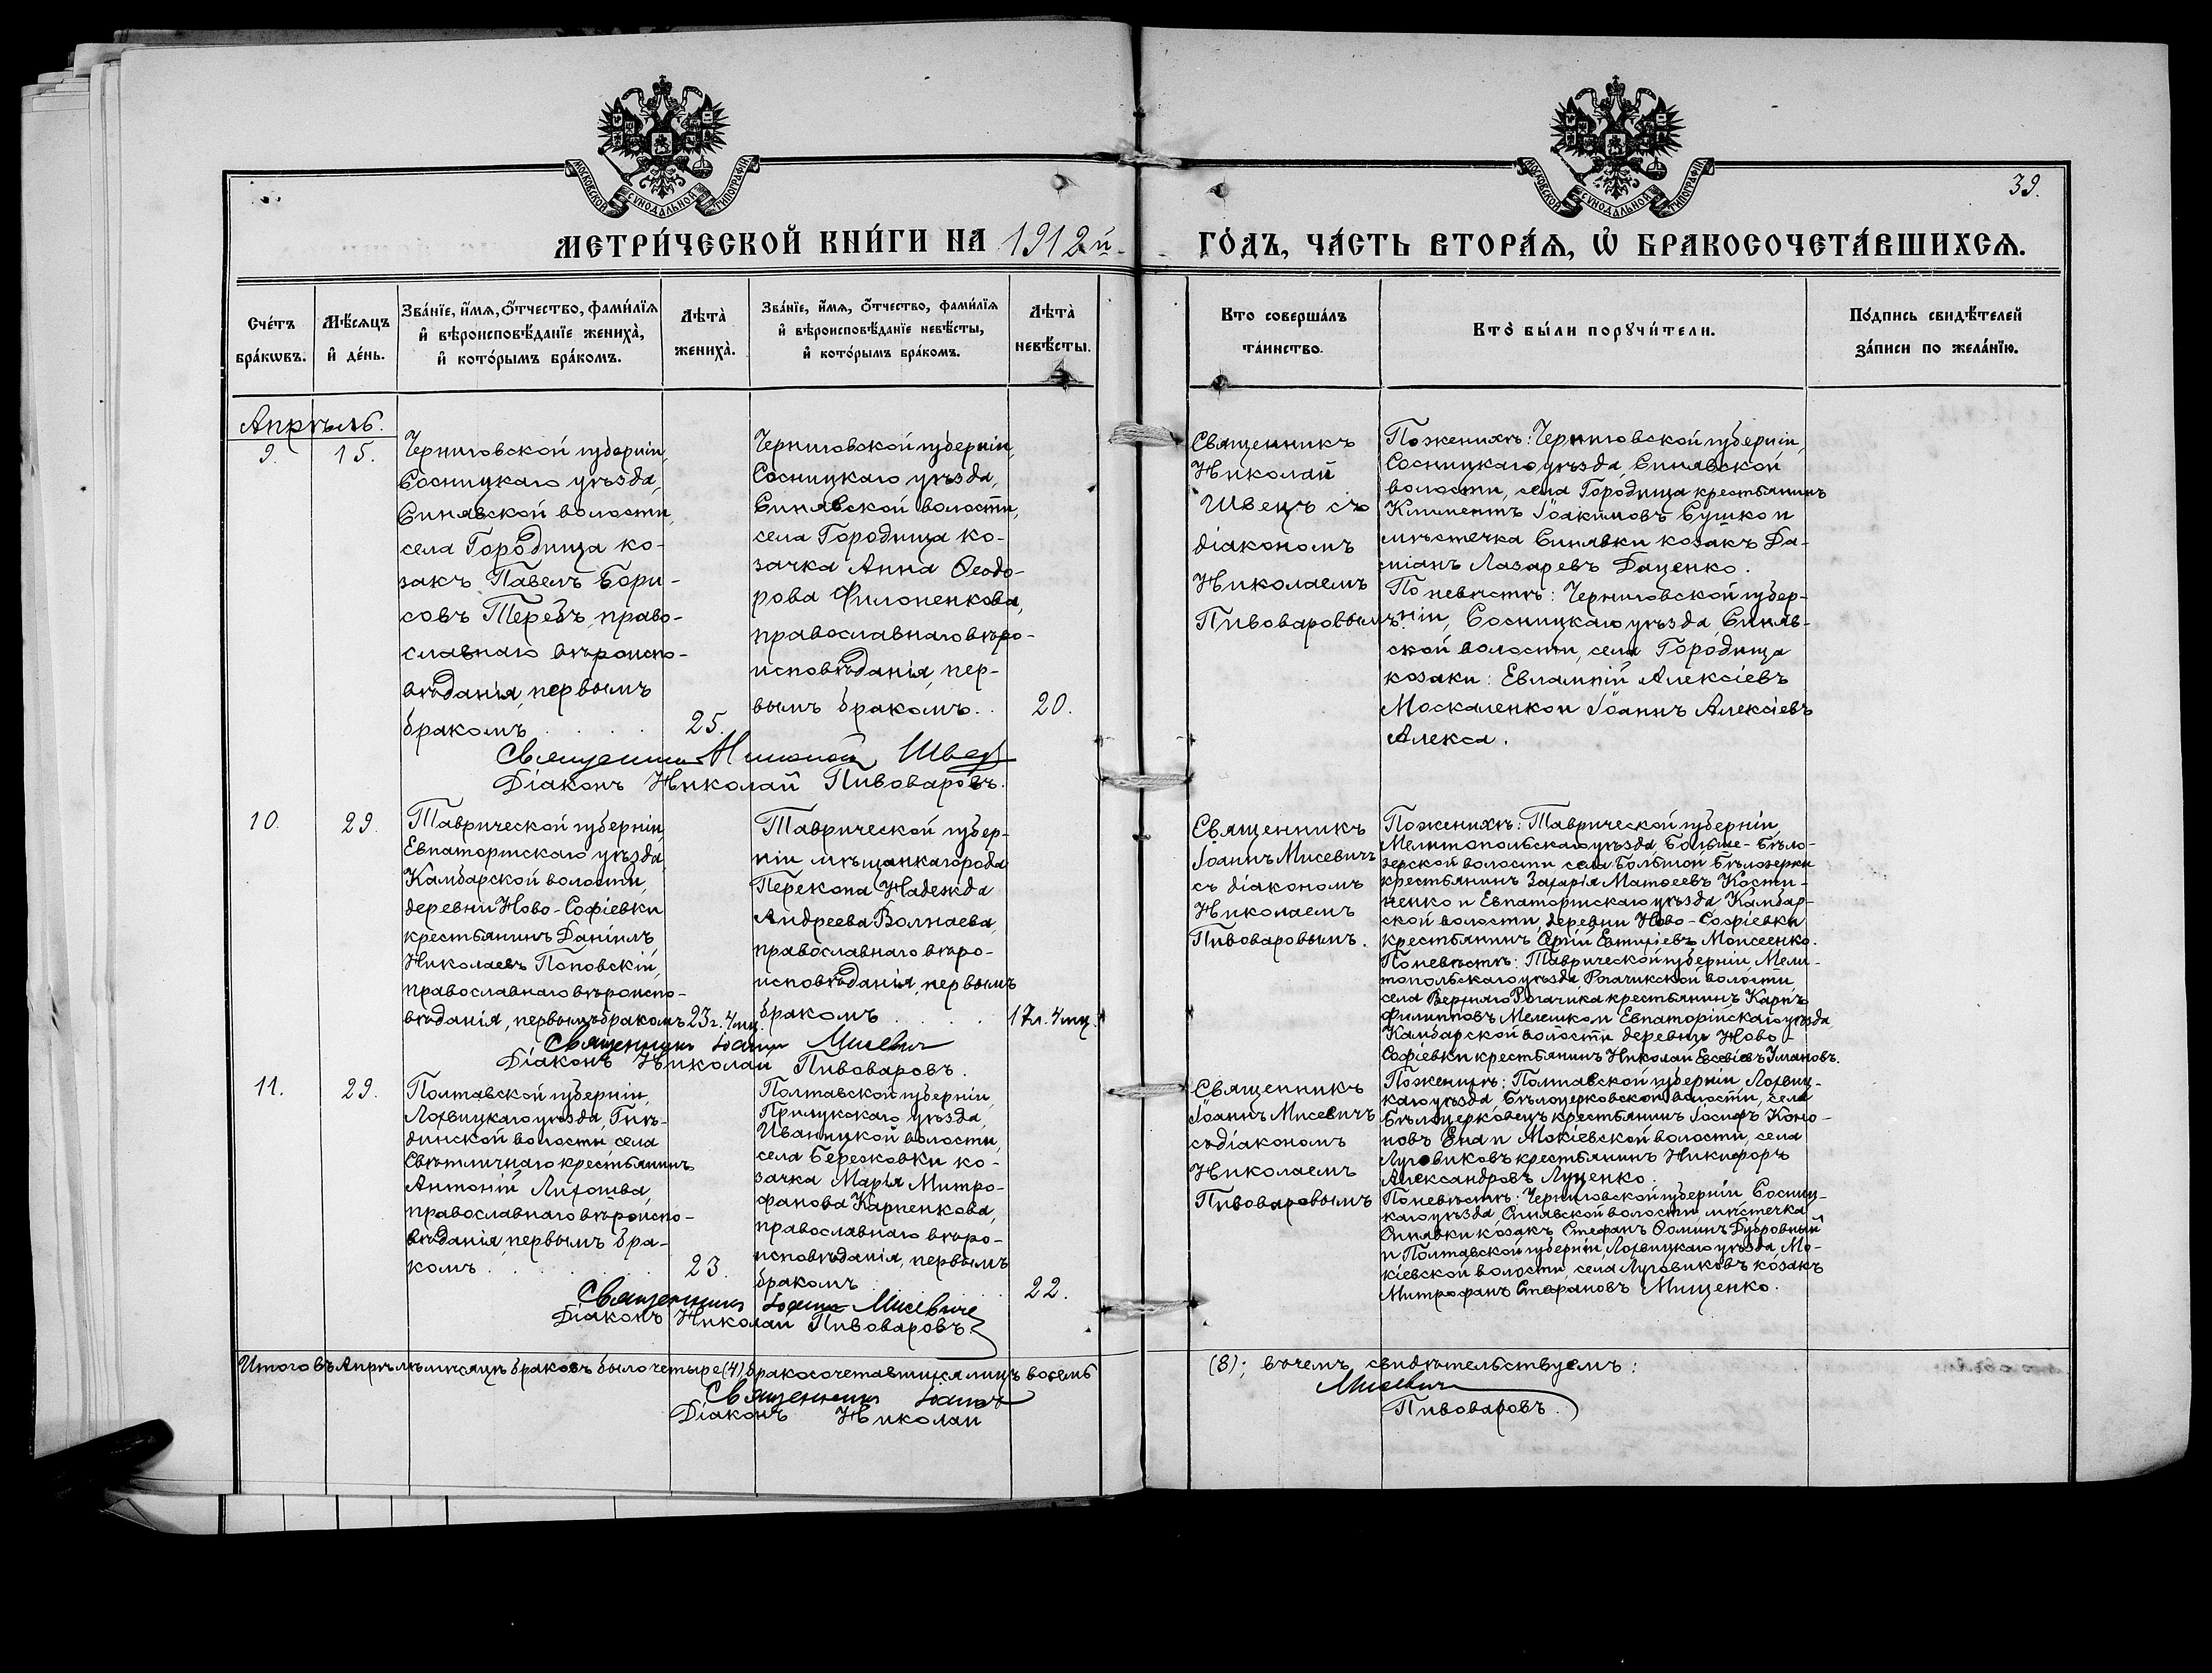 МОСКОВСКОЙ СѴНОДАЛЬНОЙ ТИПОГРАФІИ
МОСКОВСКОЙ СѴНОДАЛЬНОЙ ТИПОГРАФІИ
39.
МЕТРИ́ЧЕСКОЙ КНИ́ГИ НА 1912й
ГО́ДЪ, ЧА́СТЬ ВТОРА́Ѧ, Ѿ БРАКОСОЧЕТА́ВШИХСѦ.
Сче́тъ
бра́кωвъ.
Мѣ́сяцъ
и҆ де́нь.
Зва́нїе, и҆́мѧ, ѻ҆́тчество, фами́лїѧ
и҆ вѣроисповѣ́данїе жениха̀,
и҆ кото́рымъ бра́комъ.
Лѣ́та̀
жениха̀.
Зва́нїе, и҆́мѧ, ѻ҆́тчество, фами́лїѧ
и҆ вѣроисповѣ́данїе невѣ́сты,
и҆ кото́рымъ бра́комъ.
Лѣ́та̀
невѣ́сты.
Кто соверша́лъ
та́инство.
Кто̀ бы́ли порꙋчи́тели.
По́дпись свидѣ́телей
за́писи по жела́нїю.
Апрѣль.
9.
15.
Черниговской губерніи,
Сосницкаго уѣзда,
Синявской волости,
села Городища ко-
закъ Павелъ Бори-
совъ Теребъ, право-
славнаго вѣроиспо-
вѣданія, первымъ
бракомъ
25.
Черниговской губерніи,
Сосницкаго уѣзда,
Синявской волости,
села Городища ко-
зачка Анна Ѳеодо-
рова Филоненкова,
православнаго вѣро-
исповѣданія, пер-
вымъ бракомъ.
20.
Священникъ
Николай
Швецъ съ
діакономъ
Николаемъ
Пивоваровымъ.
По женихѣ: Черниговской губерніи,
Сосницкаго уѣзда, Синявской
волости, села Городища крестьянинъ
Климентъ Іоакимовъ Сушко и
мѣстечка Синявки козакъ Да-
міанъ Лазаревъ Даценко.
По невѣстѣ: Черниговской губер-
ніи, Сосницкаго уѣзда, Синяв-
ской волости, села Городища
козаки: Евлампій Алексіевъ
Москаленко и Іоаннъ Алексіевъ
Алекса.
Священникъ Николай Швецъ
Діаконъ Николай Пивоваровъ.
10.
29.
Таврической губерніи,
Евпаторійскаго уѣзда,
Камбарской волости,
деревни Ново-Софіевки
крестьянинъ Даніилъ
Николаевъ Поповскій,
православнаго вѣроиспо-
вѣданія, первымъ бракомъ
23 г. 4 мц.
Таврической губер-
ніи мѣщанка города
Перекопа Надежда
Андреева Волнаева,
православнаго вѣро-
исповѣданія, первымъ
бракомъ
17 л. 4 мц.
Священникъ
Іоаннъ Мисевичъ
съ діакономъ
Николаемъ
Пивоваровымъ.
По женихѣ: Таврической губерніи,
Мелитопольскаго уѣзда, Больше-Бѣло-
зерской волости, села Большой Бѣлозерки
крестьянинъ Захарія Матѳеевъ Кости-
ненко и Евпаторійскаго уѣзда Камбар-
ской волости, деревни Ново-Софіевки
крестьянинъ Сергій Евтихіевъ Моисеенко.
По невѣстѣ: Таврической губерніи, Мели-
топольскаго уѣзда Рогачикской волости,
села Верхняго Рогачика крестьянинъ Карпъ
Филипповъ Мелешко и Евпаторійскаго уѣзда
Камбарской волости деревни Ново-
Софіевки крестьянинъ Николай Евсевіевъ Умановъ.
Священникъ Іоаннъ Мисевичъ
Діаконъ Николай Пивоваровъ.
11.
29.
Полтавской губерніи,
Лохвицкаго уѣзда, Гнѣ-
динской волости села
Свѣтличнаго крестьянинъ
Антоній Лихошва,
православнаго вѣроиспо-
вѣданія, первымъ бра-
комъ
23.
Полтавской губерніи,
Прилукскаго уѣзда,
Иваницкой волости,
села Березовки ко-
зачка Марія Митро-
фанова Карпенкова,
православнаго вѣро-
исповѣданія, первымъ
бракомъ
22.
Священникъ
Іоаннъ Мисевичъ
съ діакономъ
Николаемъ
Пивоваровымъ
По женихѣ: Полтавской губерніи, Лохвиц-
каго уѣзда Бѣлоцерковской волости, села
Бѣлоцерковецъ крестьянинъ Іосифъ Коно-
новъ Ена и Мокіевской волости, села
Луговиковъ крестьянинъ Никифоръ
Александровъ Луценко.
По невѣстѣ: Черниговской губерніи, Сосниц-
каго уѣзда, Синявской волости мѣстечка
Синявки козакъ Стефанъ Ѳоминъ Дубровный
и Полтавской губерніи, Лохвицкаго уѣзда, Мо-
кіевской волости, села Луговиковъ козакъ
Митрофанъ Стефановъ Мищенко.
Священникъ Іоаннъ Мисевичъ
Діаконъ Николай Пивоваровъ.
Итого въ Апрѣлѣ мѣсяцѣ браковъ было четыре (4), бракосочетавшихся лицъ восемь
(8); въ чемъ свидѣтельствуемъ:
Священникъ Іоаннъ
Мисевичъ
Діаконъ Николай
Пивоваровъ.